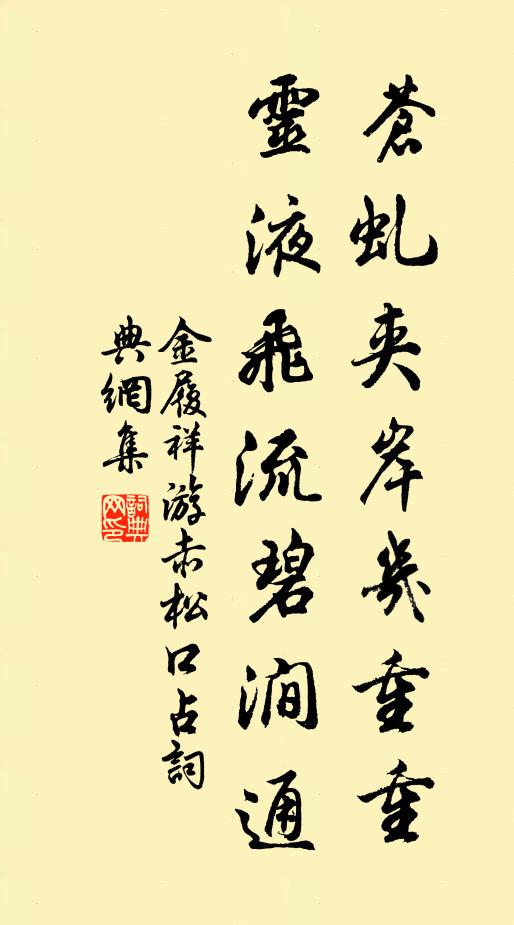 蒼虬夾岸幾重重
靈液飛流碧澗通
金履祥游赤松口占詞
典網集
詞典
网印